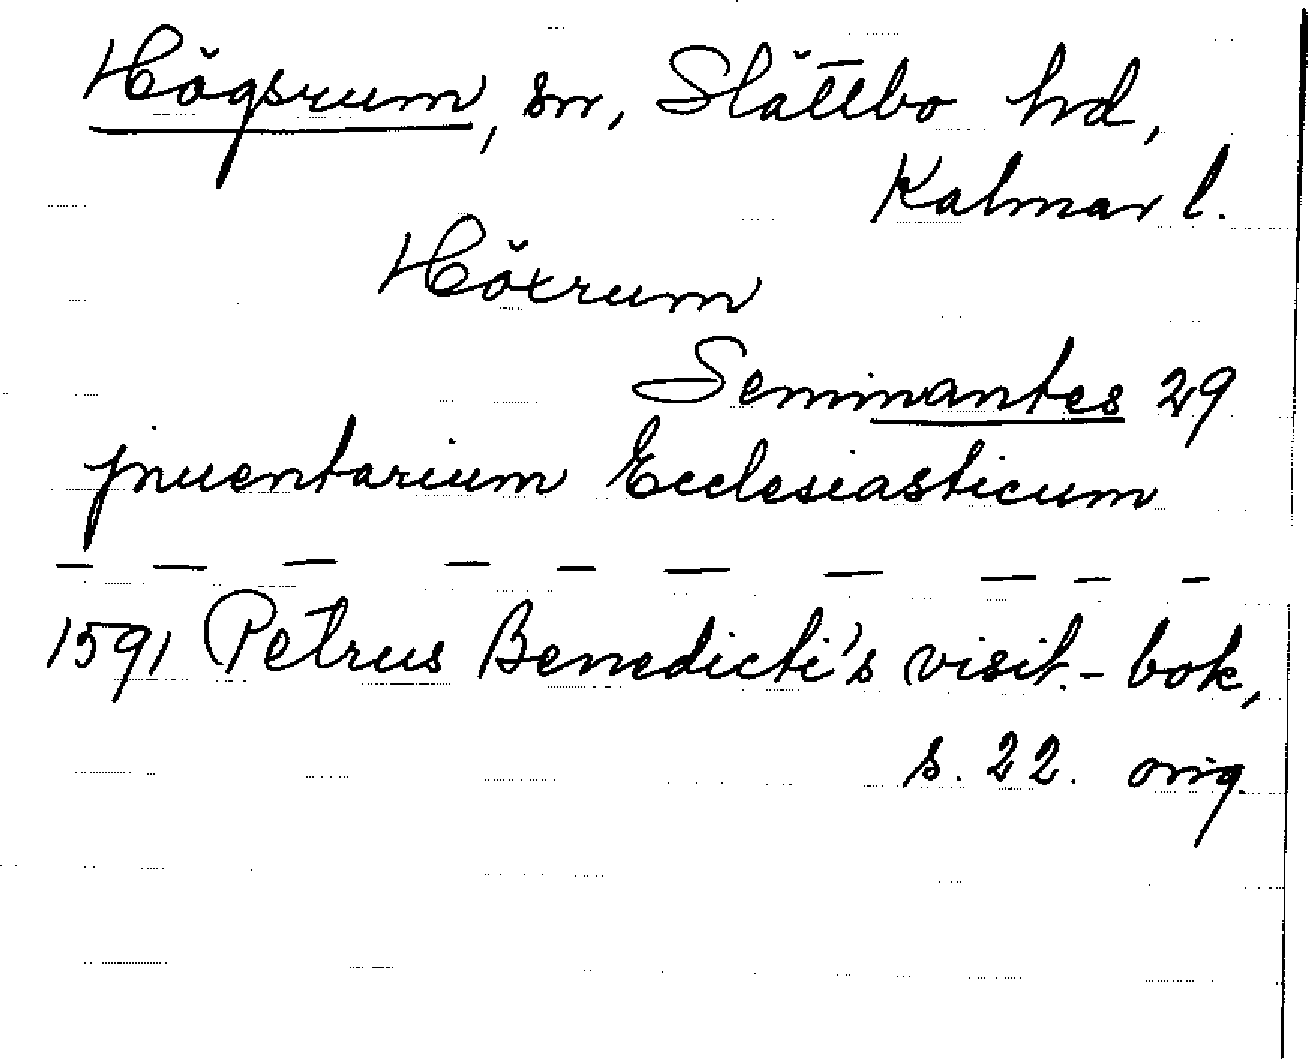 Högsrum, sn, Slättbo hd,
Kalmar l.
Höxrum
Seminantes 29
jnuentarium Ecclesiasticum
— — — — — — — — — —
1591 Petrus Benedicti's visit.-bok,
s. 22. orig.